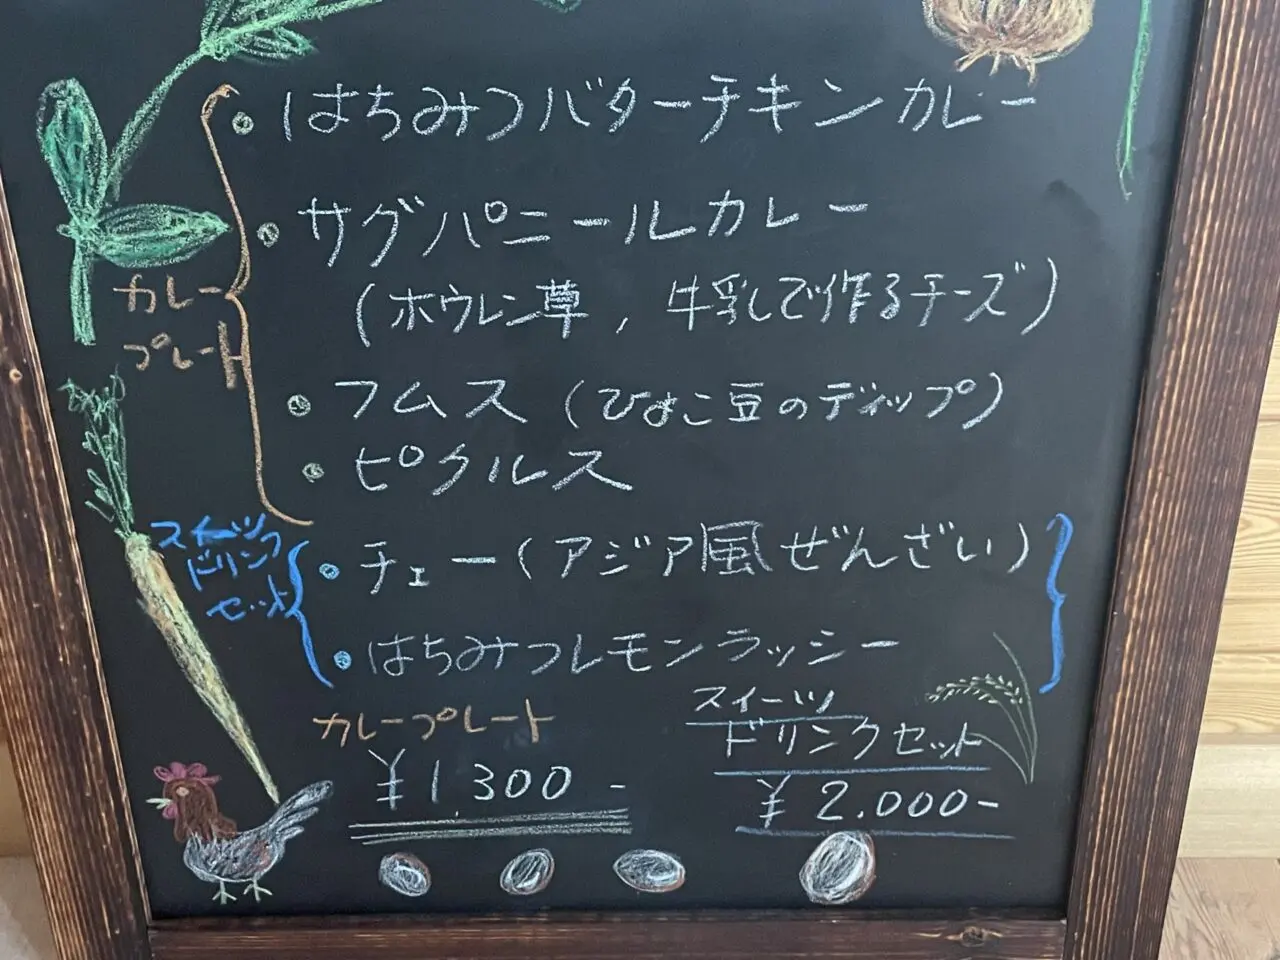 ・はちみつバターチキンカレー
・サグパニールカレー
(ホウレン草, 牛乳で作るチーズ)
カレー
プレート
・フムス(ひよこ豆のディップ)
・ピクルス
スイーツ
ドリンク
セット
・チェー(アジア風ぜんざい)
・はちみつレモンラッシー
カレープレート
¥1,300-
スイーツ
ドリンクセット
¥2.000-